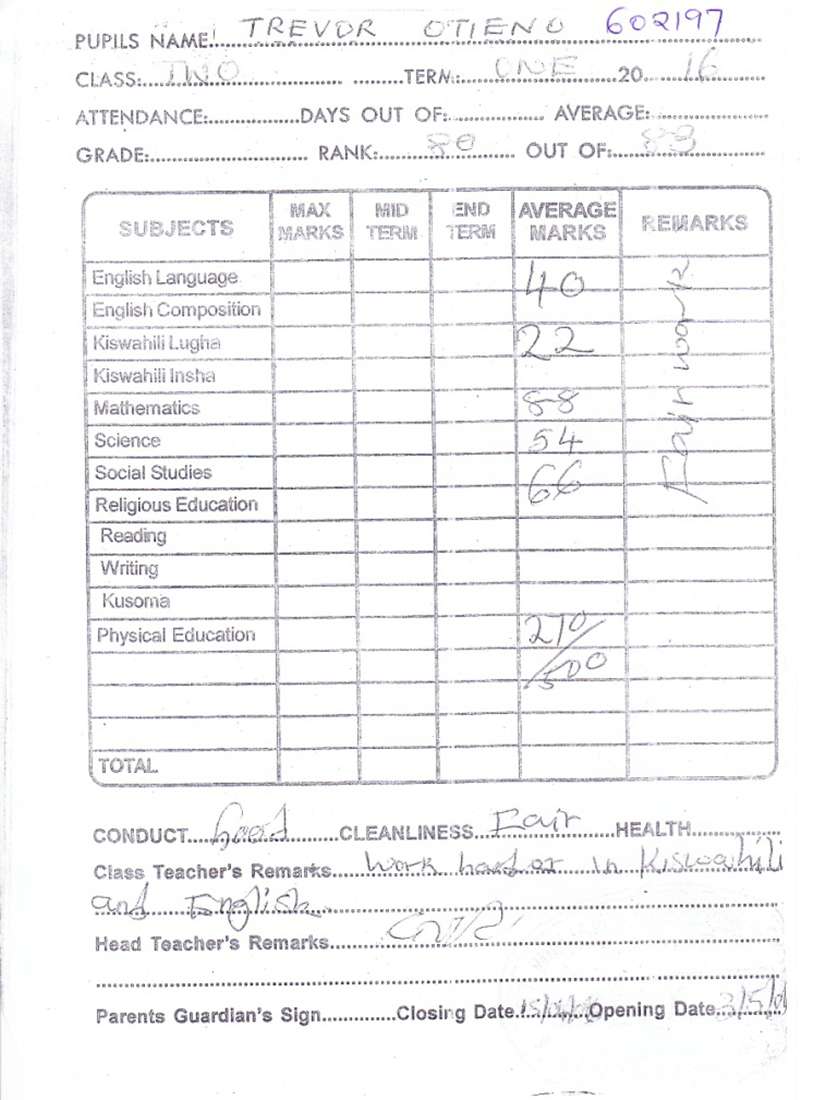 PUPILS NAME: TREVOR OTIENO 602197
CLASS: TWO TERM: ONE 20 16
ATTENDANCE: DAYS OUT OF: AVERAGE:
GRADE: RANK: 80 OUT OF: 83
SUBJECTS MAX MARKS MID TERM END TERM AVERAGE MARKS REMARKS
English Language 40
English Composition
Kiswahili Lugha 22
Kiswahili Insha
Mathematics 88
Science 54
Social Studies 66
Religious Education
Reading
Writing
Kusoma
Physical Education 270/500
TOTAL
Fair work
CONDUCT Good CLEANLINESS Fair HEALTH
Class Teacher's Remarks Work harder in Kiswahili
and English
Head Teacher's Remarks
Parents Guardian's Sign Closing Date Opening Date 3/5/